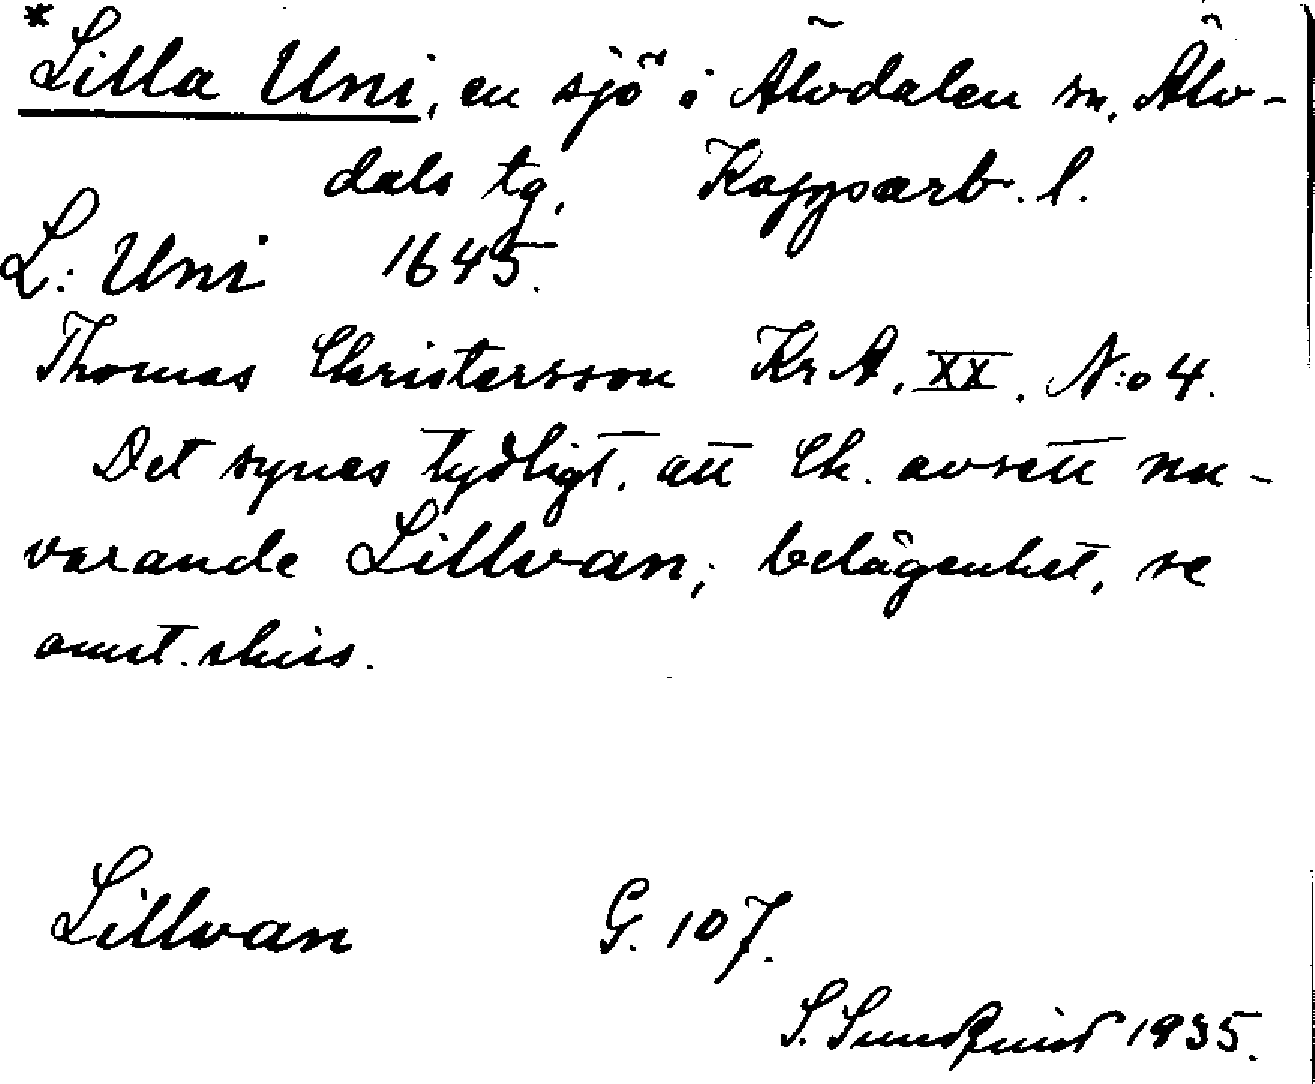 *Lilla Uni, en sjö i Älvdalen sn, Älv-
dals tg, Kopparb. l.
L: Uni 1645.
Thomas Christersson Kr A, XX, N:o 4.
Det synes tydligt, att Ch. avsett nu-
varande Lillvan; belägenhet, se
omst. skiss.
Lillvan G. 107.
S. Sundquist 1935.